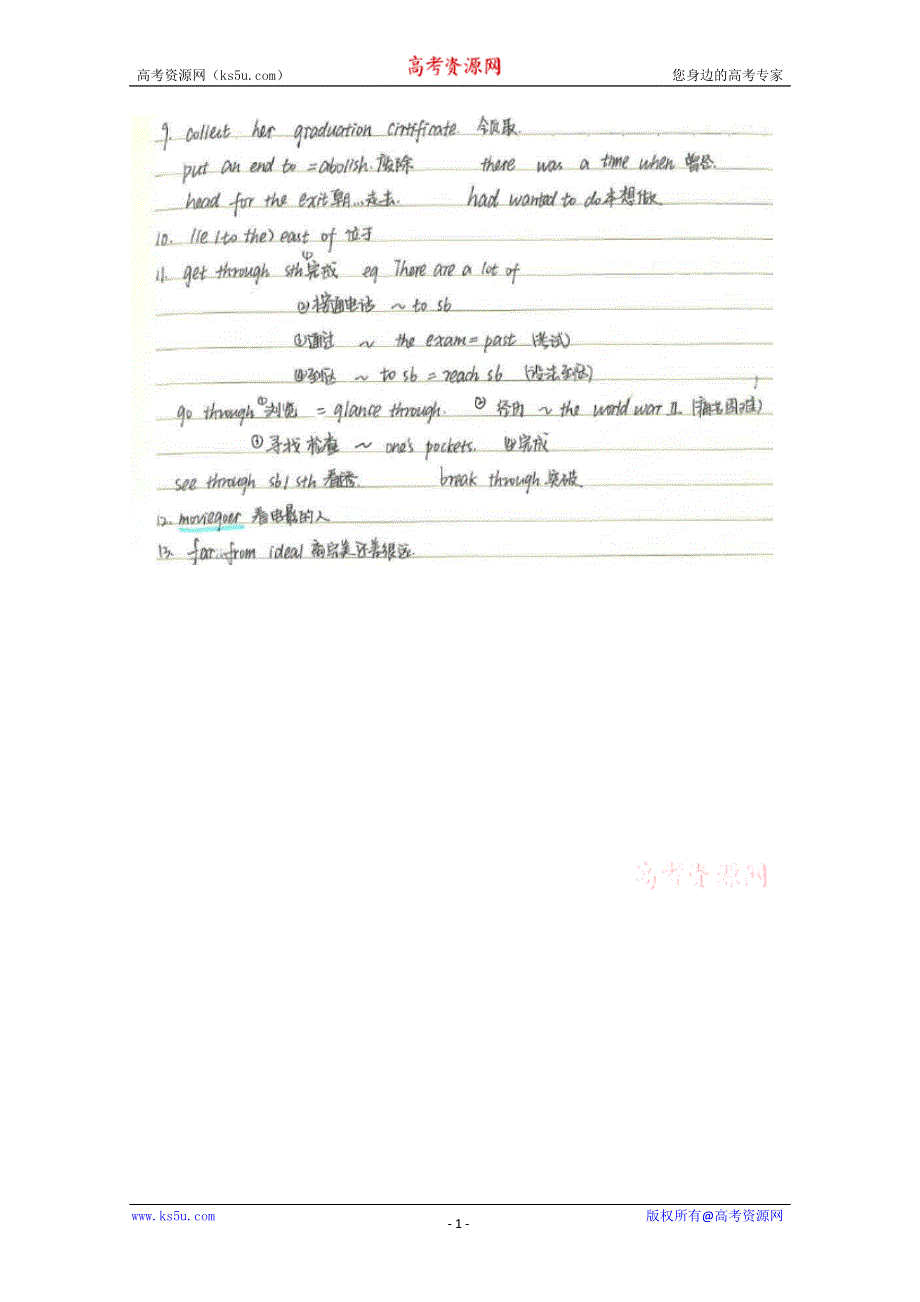 高考资源网（ks5u.com）
高考资源网
您身边的高考专家
9. collect her graduation cirtificate 领取.
put an end to =abolish.废除 there was a time when 曾经.
head for the exit 朝...走去. had wanted to do 本想做
10. lie (to the) east of 位于
11. get through sth ①完成 eg There are a lot of
②接通电话 ~ to sb
③通过 ~ the exam = past (考试)
④到达 ~ to sb = reach sb (设法到达)
go through ①浏览 = glance through. ② 经历 ~ the world warr II. (痛苦困难)
③寻找 检查 ~ one's pockets. ④完成
see through sb/sth 看透. break through 突破
12. moviegoer 看电影的人
13. far from ideal 离完美还差很远.
高考资源网
www.ks5u.com
- 1 -
版权所有@高考资源网